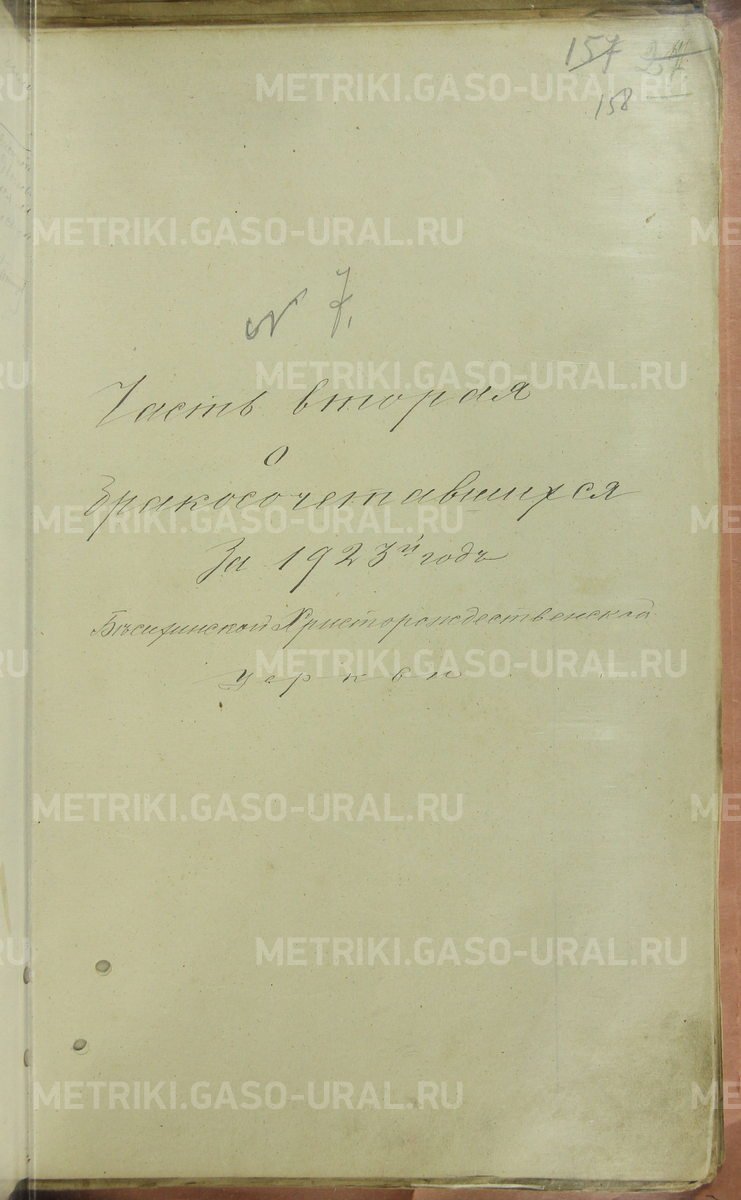 157
158
N 7.
Часть вторая
о
бракосочетавшихся
За 1923й годъ
Христорождественской
церкви
METRIKI.GASO-URAL.RU